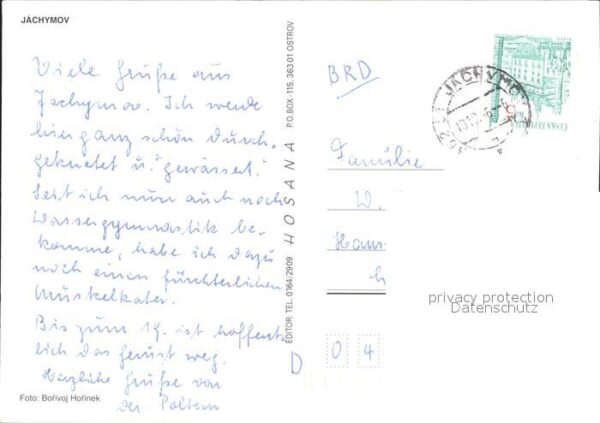 JÁCHYMOV
Viele Grüße aus
Jachymov. Ich werde
hier ganz schön durch-
geknetet u. "gewässert".
Seit ich nun auch noch
Wassergymnastik be-
komme, habe ich dazu
noch einen fürchterlichen
Muskelkater.
Bis zum 19. ist hoffent-
lich das Gerüst weg.
Herzliche Grüße von
der Poltern
Foto: Bořivoj Hořínek
EDITOR: TEL. 0164/2909 HOSANA P.O.BOX -115, 363 01 OSTROV
BRD
JÁCHYMOV
Familie
W.
Haus
D 04
privacy protection
Datenschutz